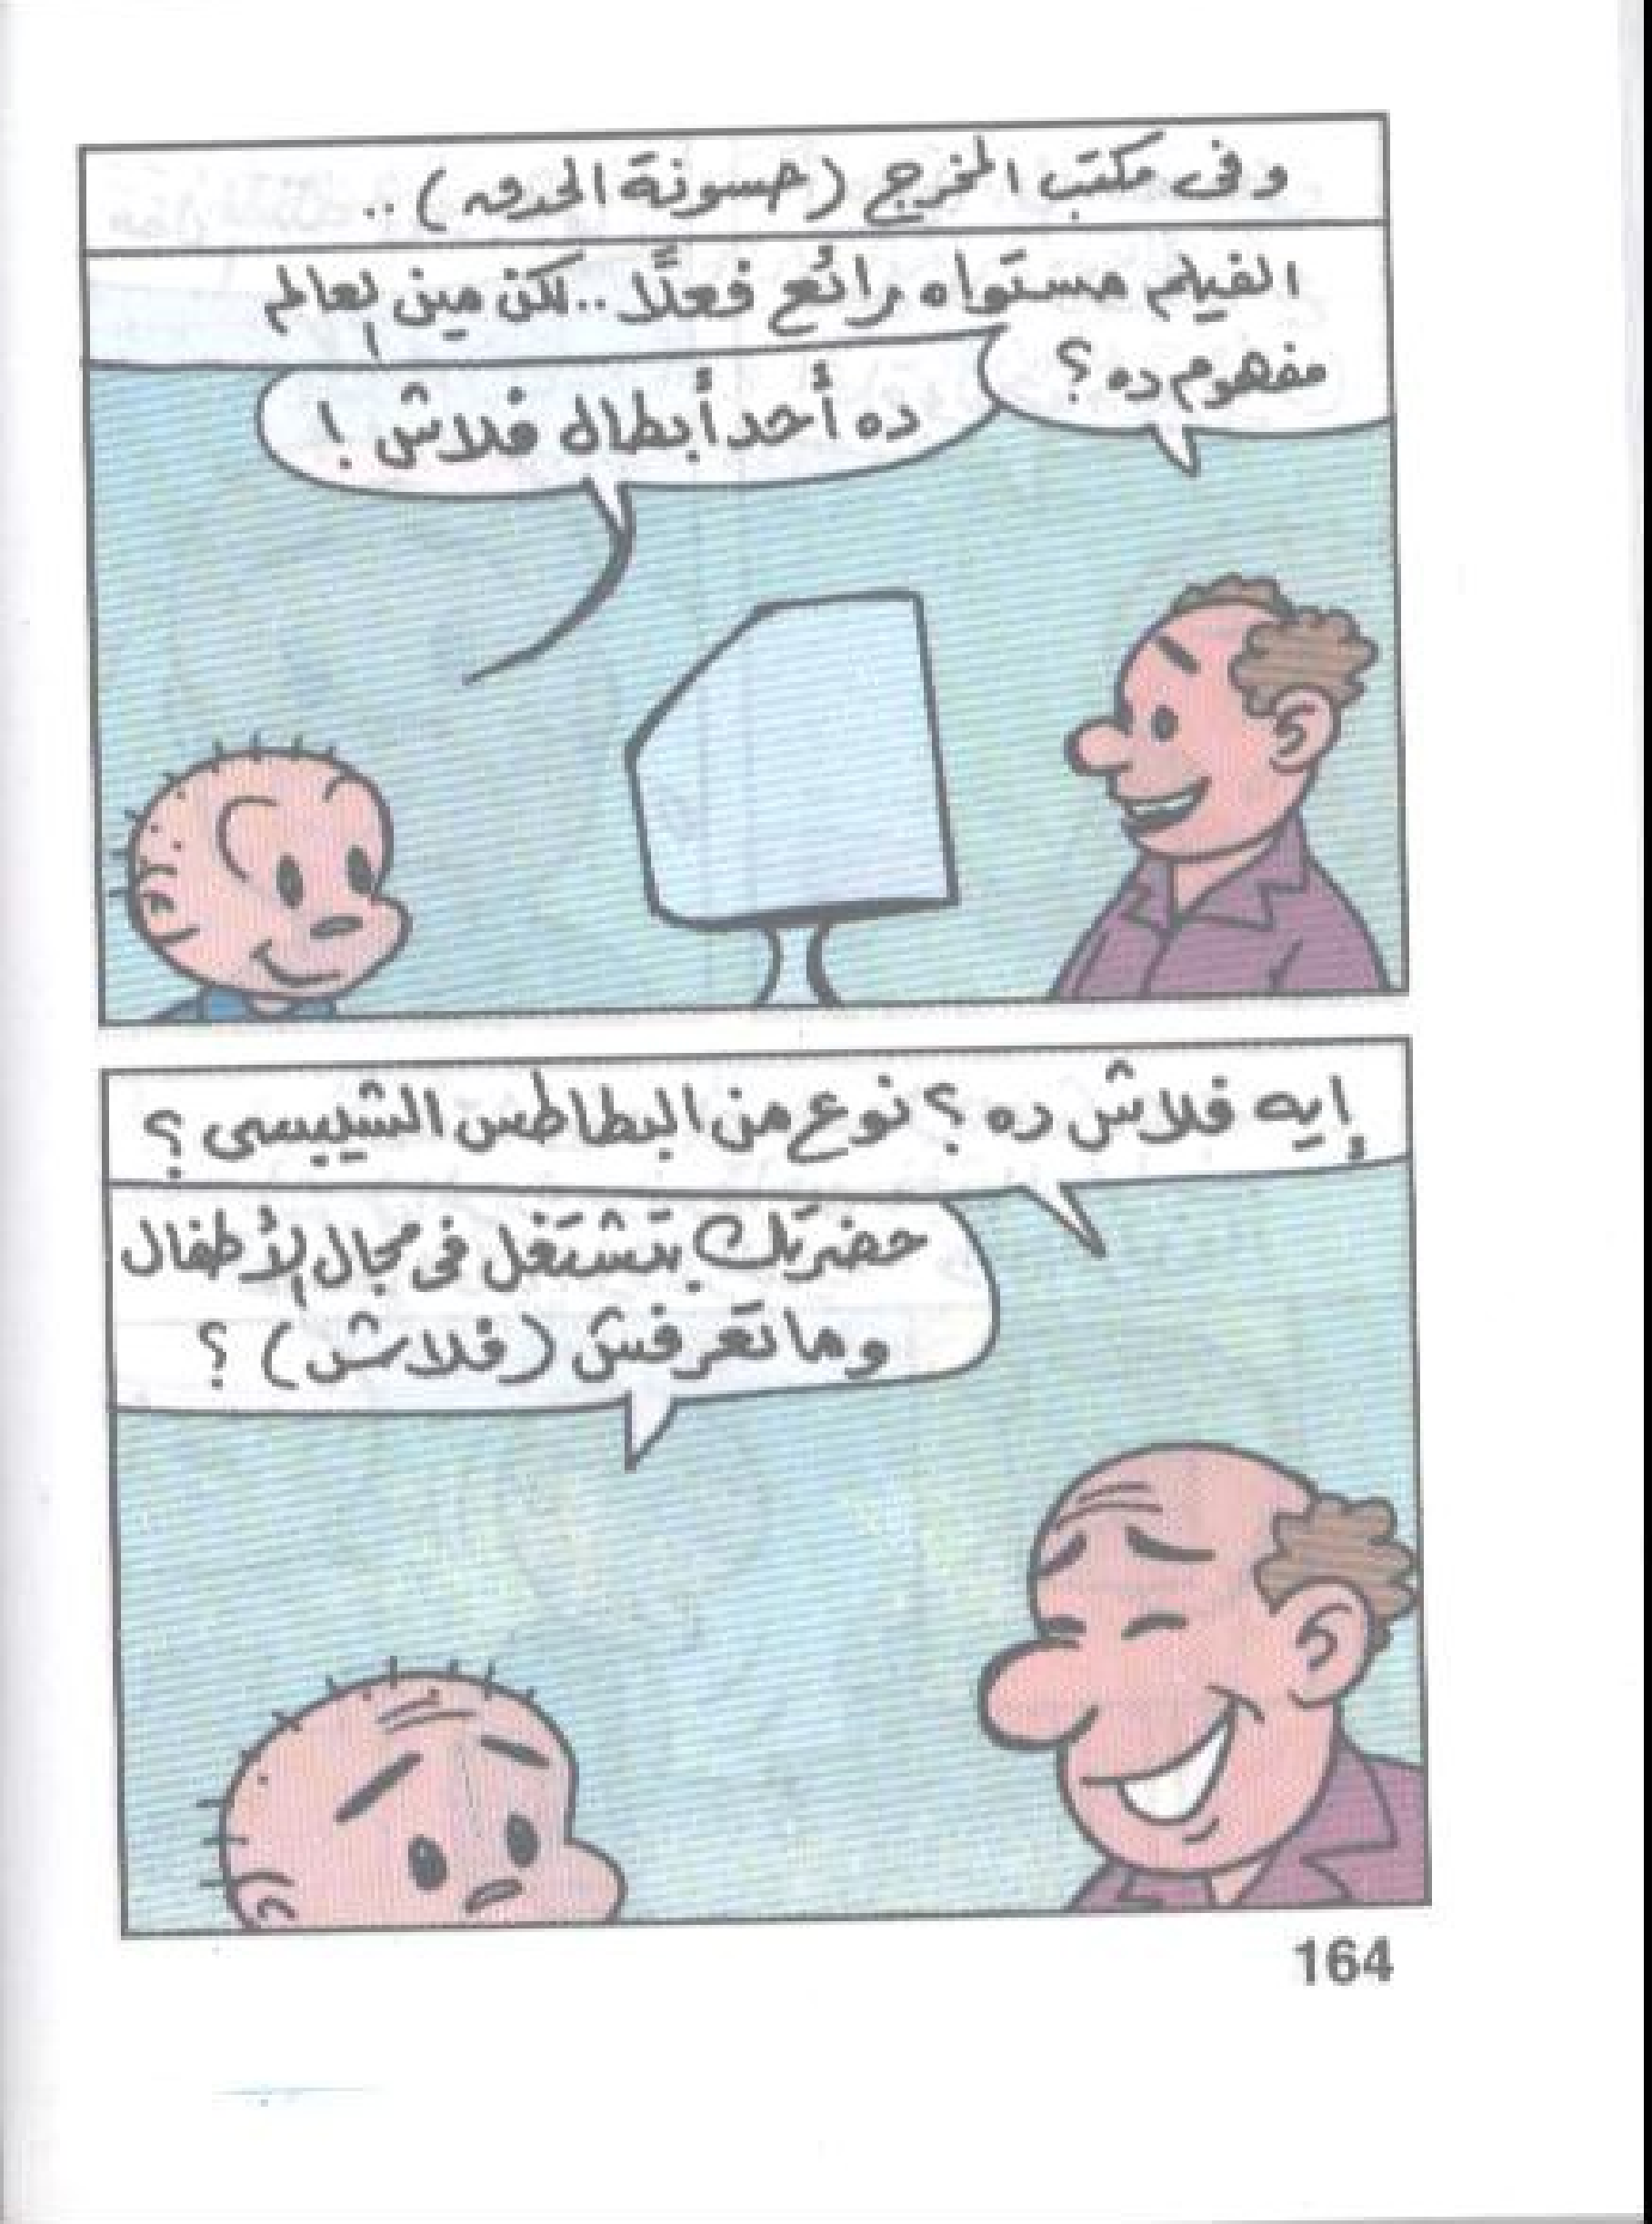 وفى مكتب المخرج (حسونة الحدق)..
الفيلم مستواه رائع فعلًا..لكن مين العالم
مفهوم ده؟
ده أحد أبطال فلاش!
إيه فلاش ده؟ نوع من البطاطس الشيبسى؟
حضرتك بتشتغل فى مجال الأطفال
وما تعرفش (فلاش)؟
164